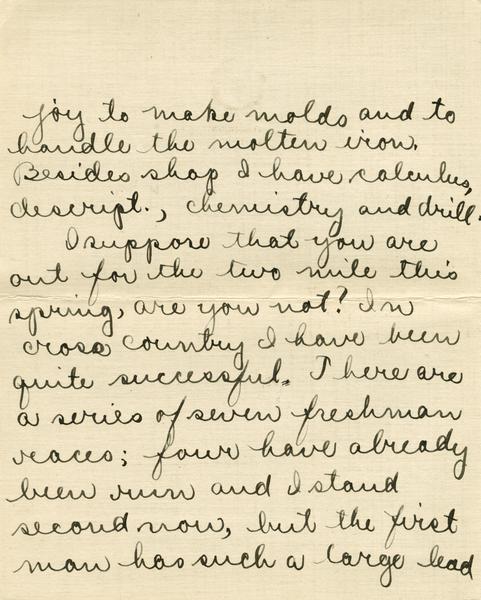 joy to make molds and to
handle the molten iron.
Besides shop I have calculus,
descript., chemistry and drill.
I suppose that you are
out for the two mile this
spring, are you not? In
cross country I have been
quite successful. There are
a series of seven freshman
races; four have already
been run and I stand
second now, but the first
man has such a large lead